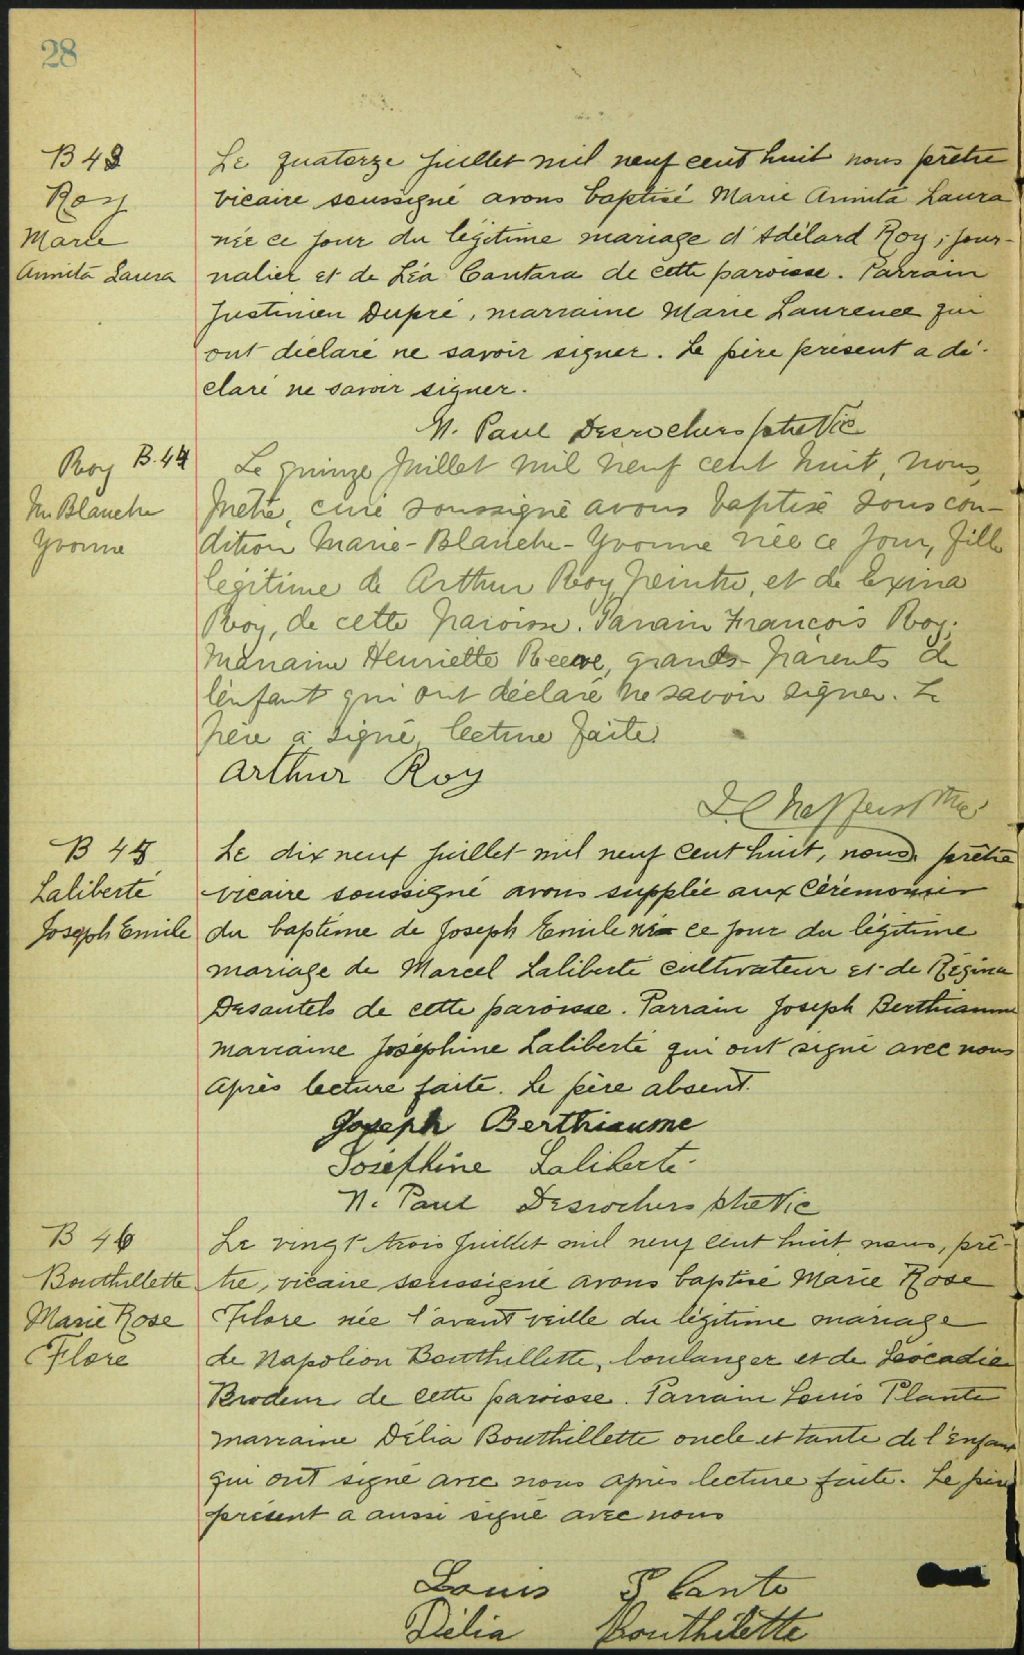 28
B 43
Roy
Marie
Annita Laura
Le quatorze juillet mil neuf cent huit nous prêtre
vicaire soussigné avons baptisé Marie Annita Laura
née ce jour du légitime mariage d'Adélard Roy, jour-
nalier et de Léa Cantara de cette paroisse. Parrain
Justinien Dupré, marraine Marie Laurence qui
ont déclaré ne savoir signer. Le père présent a dé-
claré ne savoir signer.
N. Paul Desrochers ptre Vic
Roy B. 44
M. Blanche
Yvonne
Le quinze Juillet mil neuf cent huit, nous,
prêtre, curé soussigné avons baptisé sous con-
dition Marie-Blanche-Yvonne née ce jour, fille
légitime de Arthur Roy, peintre, et de Exina
Roy, de cette paroisse. Parrain François Roy;
Marraine Henriette Reeve, grands-parents de
l'enfant qui ont déclaré ne savoir signer. Le
père a signé, lecture faite.
Arthur Roy
B 45
Laliberté
Joseph Emile
Le dix neuf juillet mil neuf cent huit, nous, prêtre
vicaire soussigné avons supplée aux cérémonies
du baptême de Joseph Emile né ce jour du légitime
mariage de Marcel Laliberté cultivateur et de Régina
Desautels de cette paroisse. Parrain Joseph Berthiaume
marraine Joséphine Laliberté qui ont signé avec nous
après lecture faite. Le père absent.
Joseph Berthiaume
Joséphine Laliberté
N. Paul Desrochers ptre Vic
B 46
Bouthillette
Marie Rose
Flore
Le vingt trois juillet mil neuf cent huit nous, prê-
tre, vicaire soussigné avons baptisé Marie Rose
Flore née l'avant veille du légitime mariage
de Napoléon Bouthillette, boulanger et de Léocadie
Brodeur de cette paroisse. Parrain Louis Plante
marraine Délia Bouthillette oncle et tante de l'enfant
qui ont signé avec nous après lecture faite. Le père
présent a aussi signé avec nous
Louis Plante
Délia Bouthilette